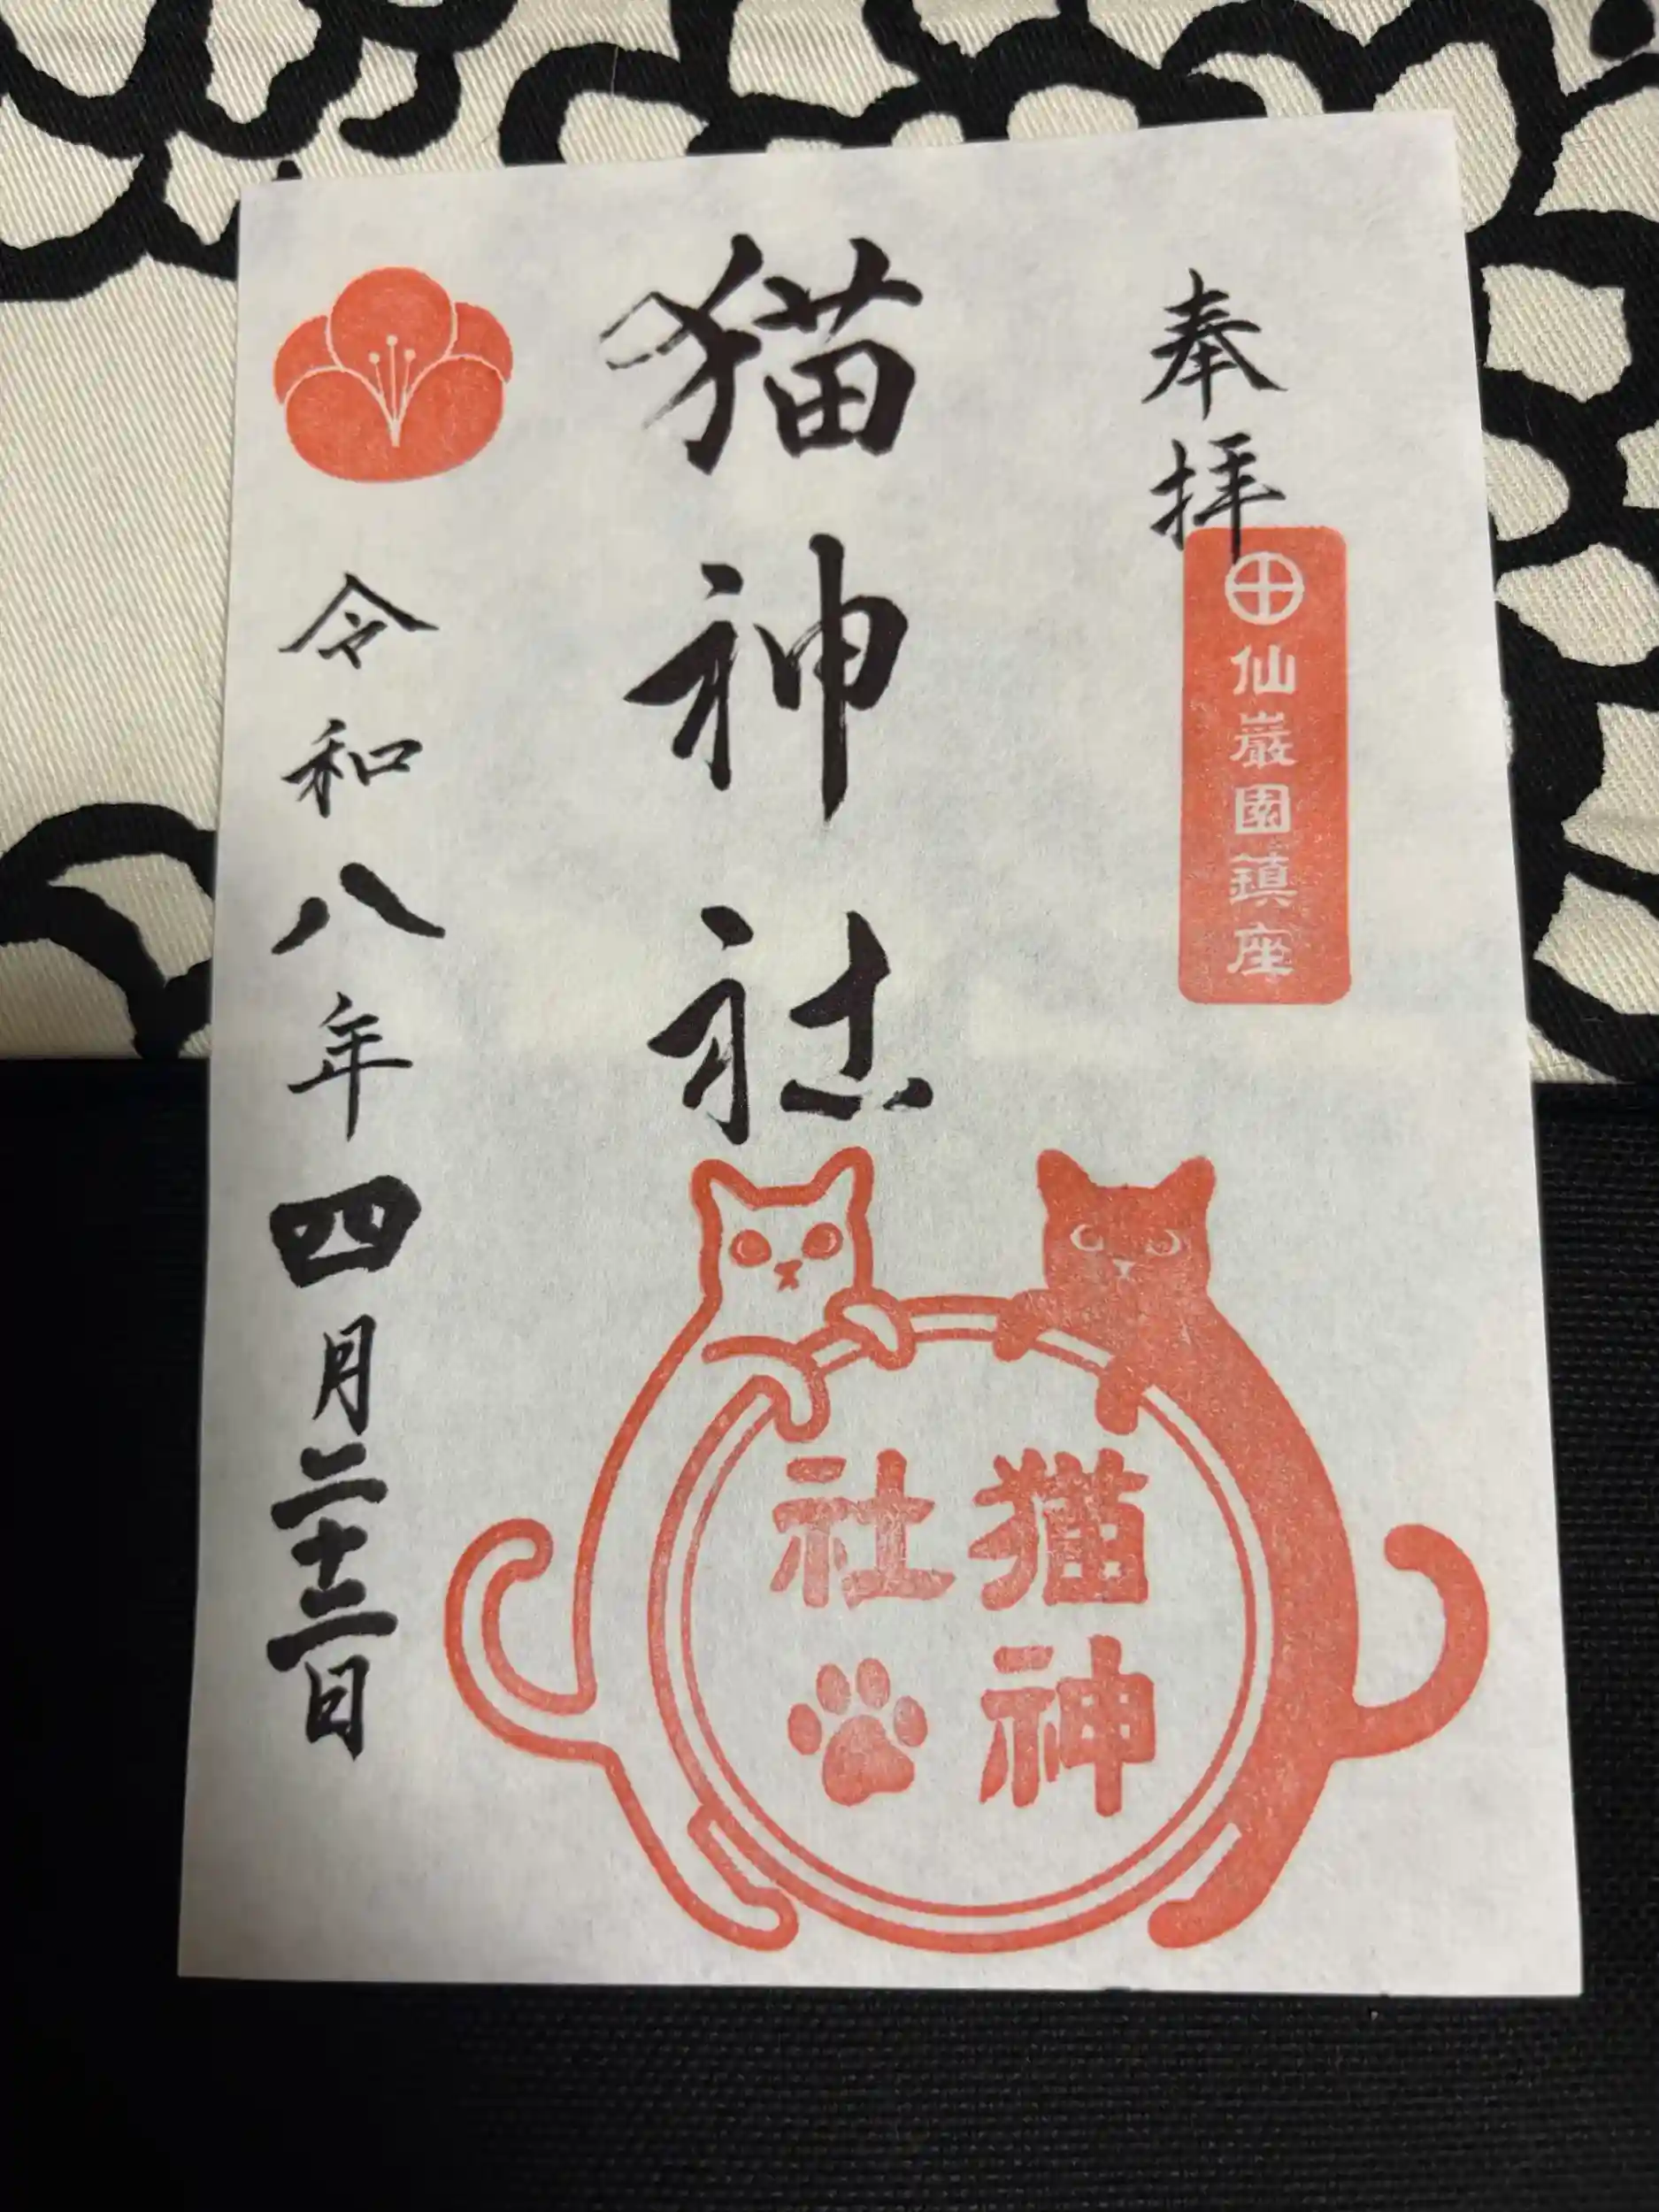 奉拝
仙巌園鎮座
猫神社
令和八年四月二十二日
猫神
社